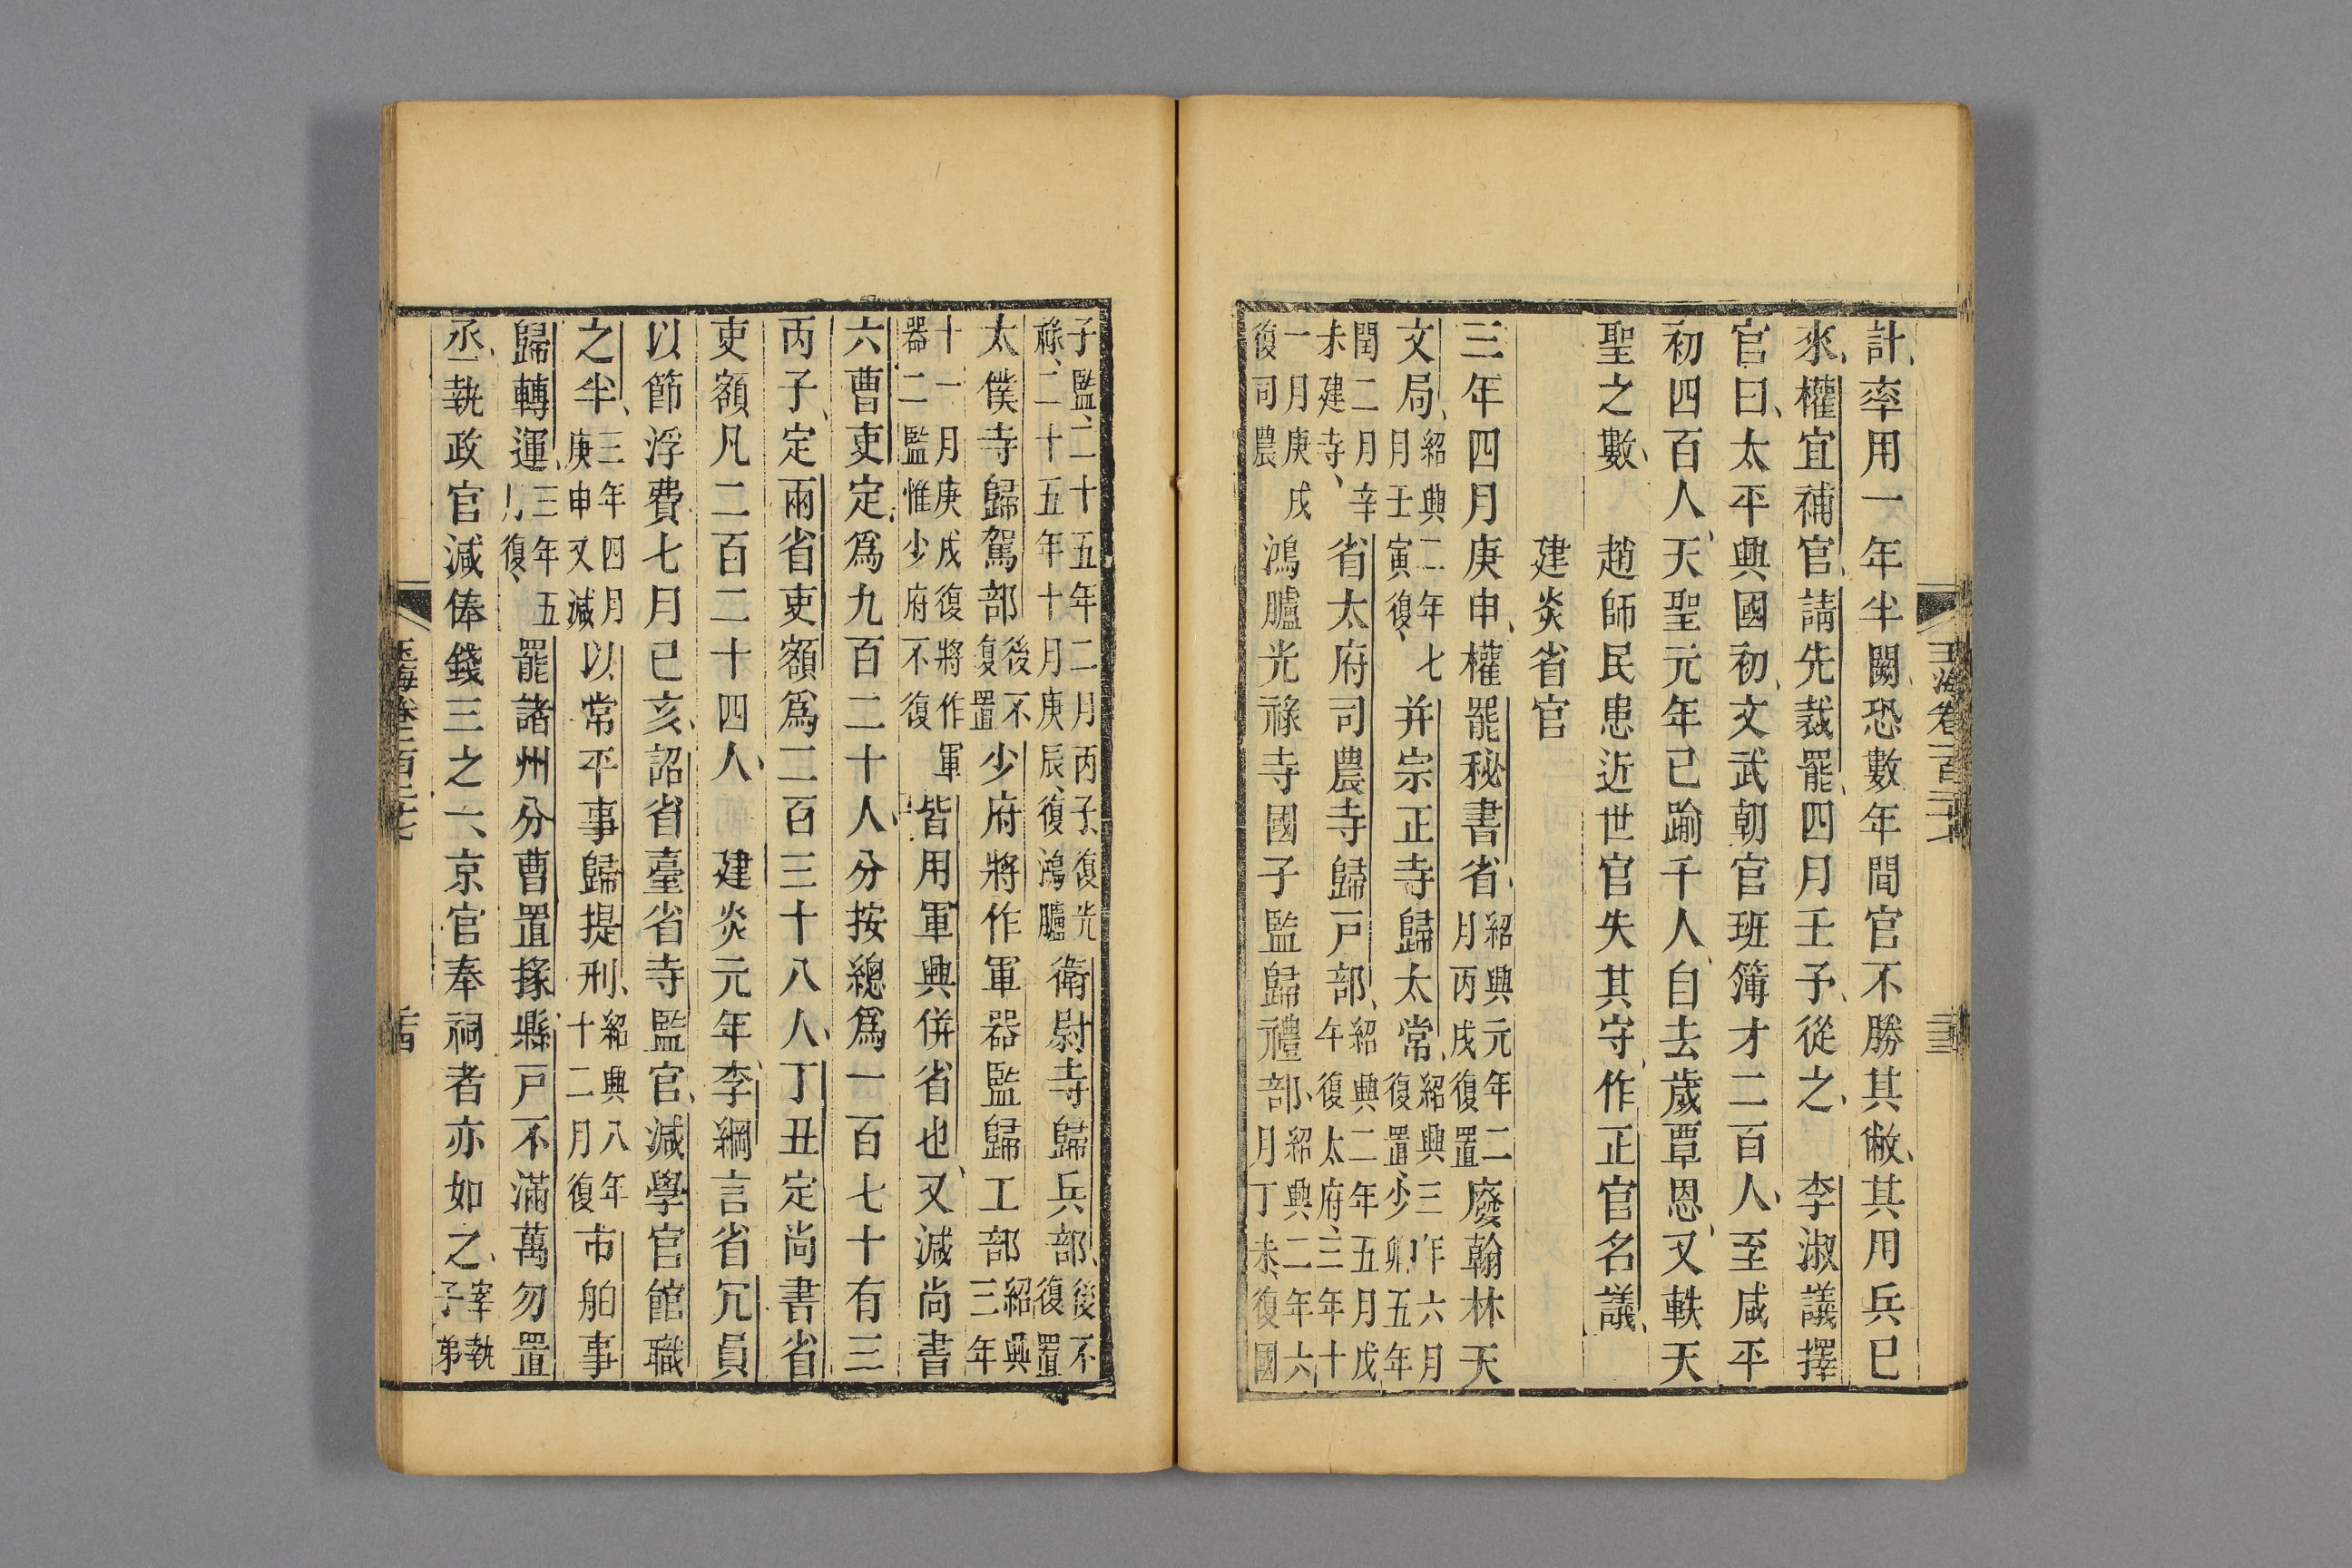 計率用一年半闕恐數年間官不勝其敝其用兵已
來權宜補官請先裁罷四月壬子從之　李淑議擇
官曰太平興國初文武朝官班簿才二百人至咸平
初四百人天聖元年已踰千人自去歲覃恩又軼天
聖之數　趙師民患近世官失其守作正官名議
建炎省官
三年四月庚申權罷秘書省紹興元年二月丙戌復置廢翰林天
文局紹興二年七月壬寅復并宗正寺歸太常紹興三年六月復置少卿五年
閏二月辛未建寺省太府司農寺歸戶部紹興二年五月戊午復太府三年十
一月庚戌復司農鴻臚光祿寺國子監歸禮部紹興二年六月丁未復國
子監二十五年二月丙子復光祿二十五年十月庚辰復鴻臚衛尉寺歸兵部後不復置
太僕寺歸駕部後不復置少府將作軍器監歸工部紹興三年
十一月庚戌復將作軍器二監惟少府不復皆用軍興併省也又減尚書
六曹吏定爲九百二十人分按總爲一百七十有三
丙子定兩省吏額爲二百三十八人丁丑定尚書省
吏額凡二百二十四人　建炎元年李綱言省冗員
以節浮費七月己亥詔省臺省寺監官減學官館職
之半三年四月庚申又減以常平事歸提刑紹興八年十二月復市舶事
歸轉運三年五月復罷諸州分曹置掾縣戶不滿萬勿置
丞執政官減俸錢三之一京官奉祠者亦如之宰執子弟
玉海卷一百二十七